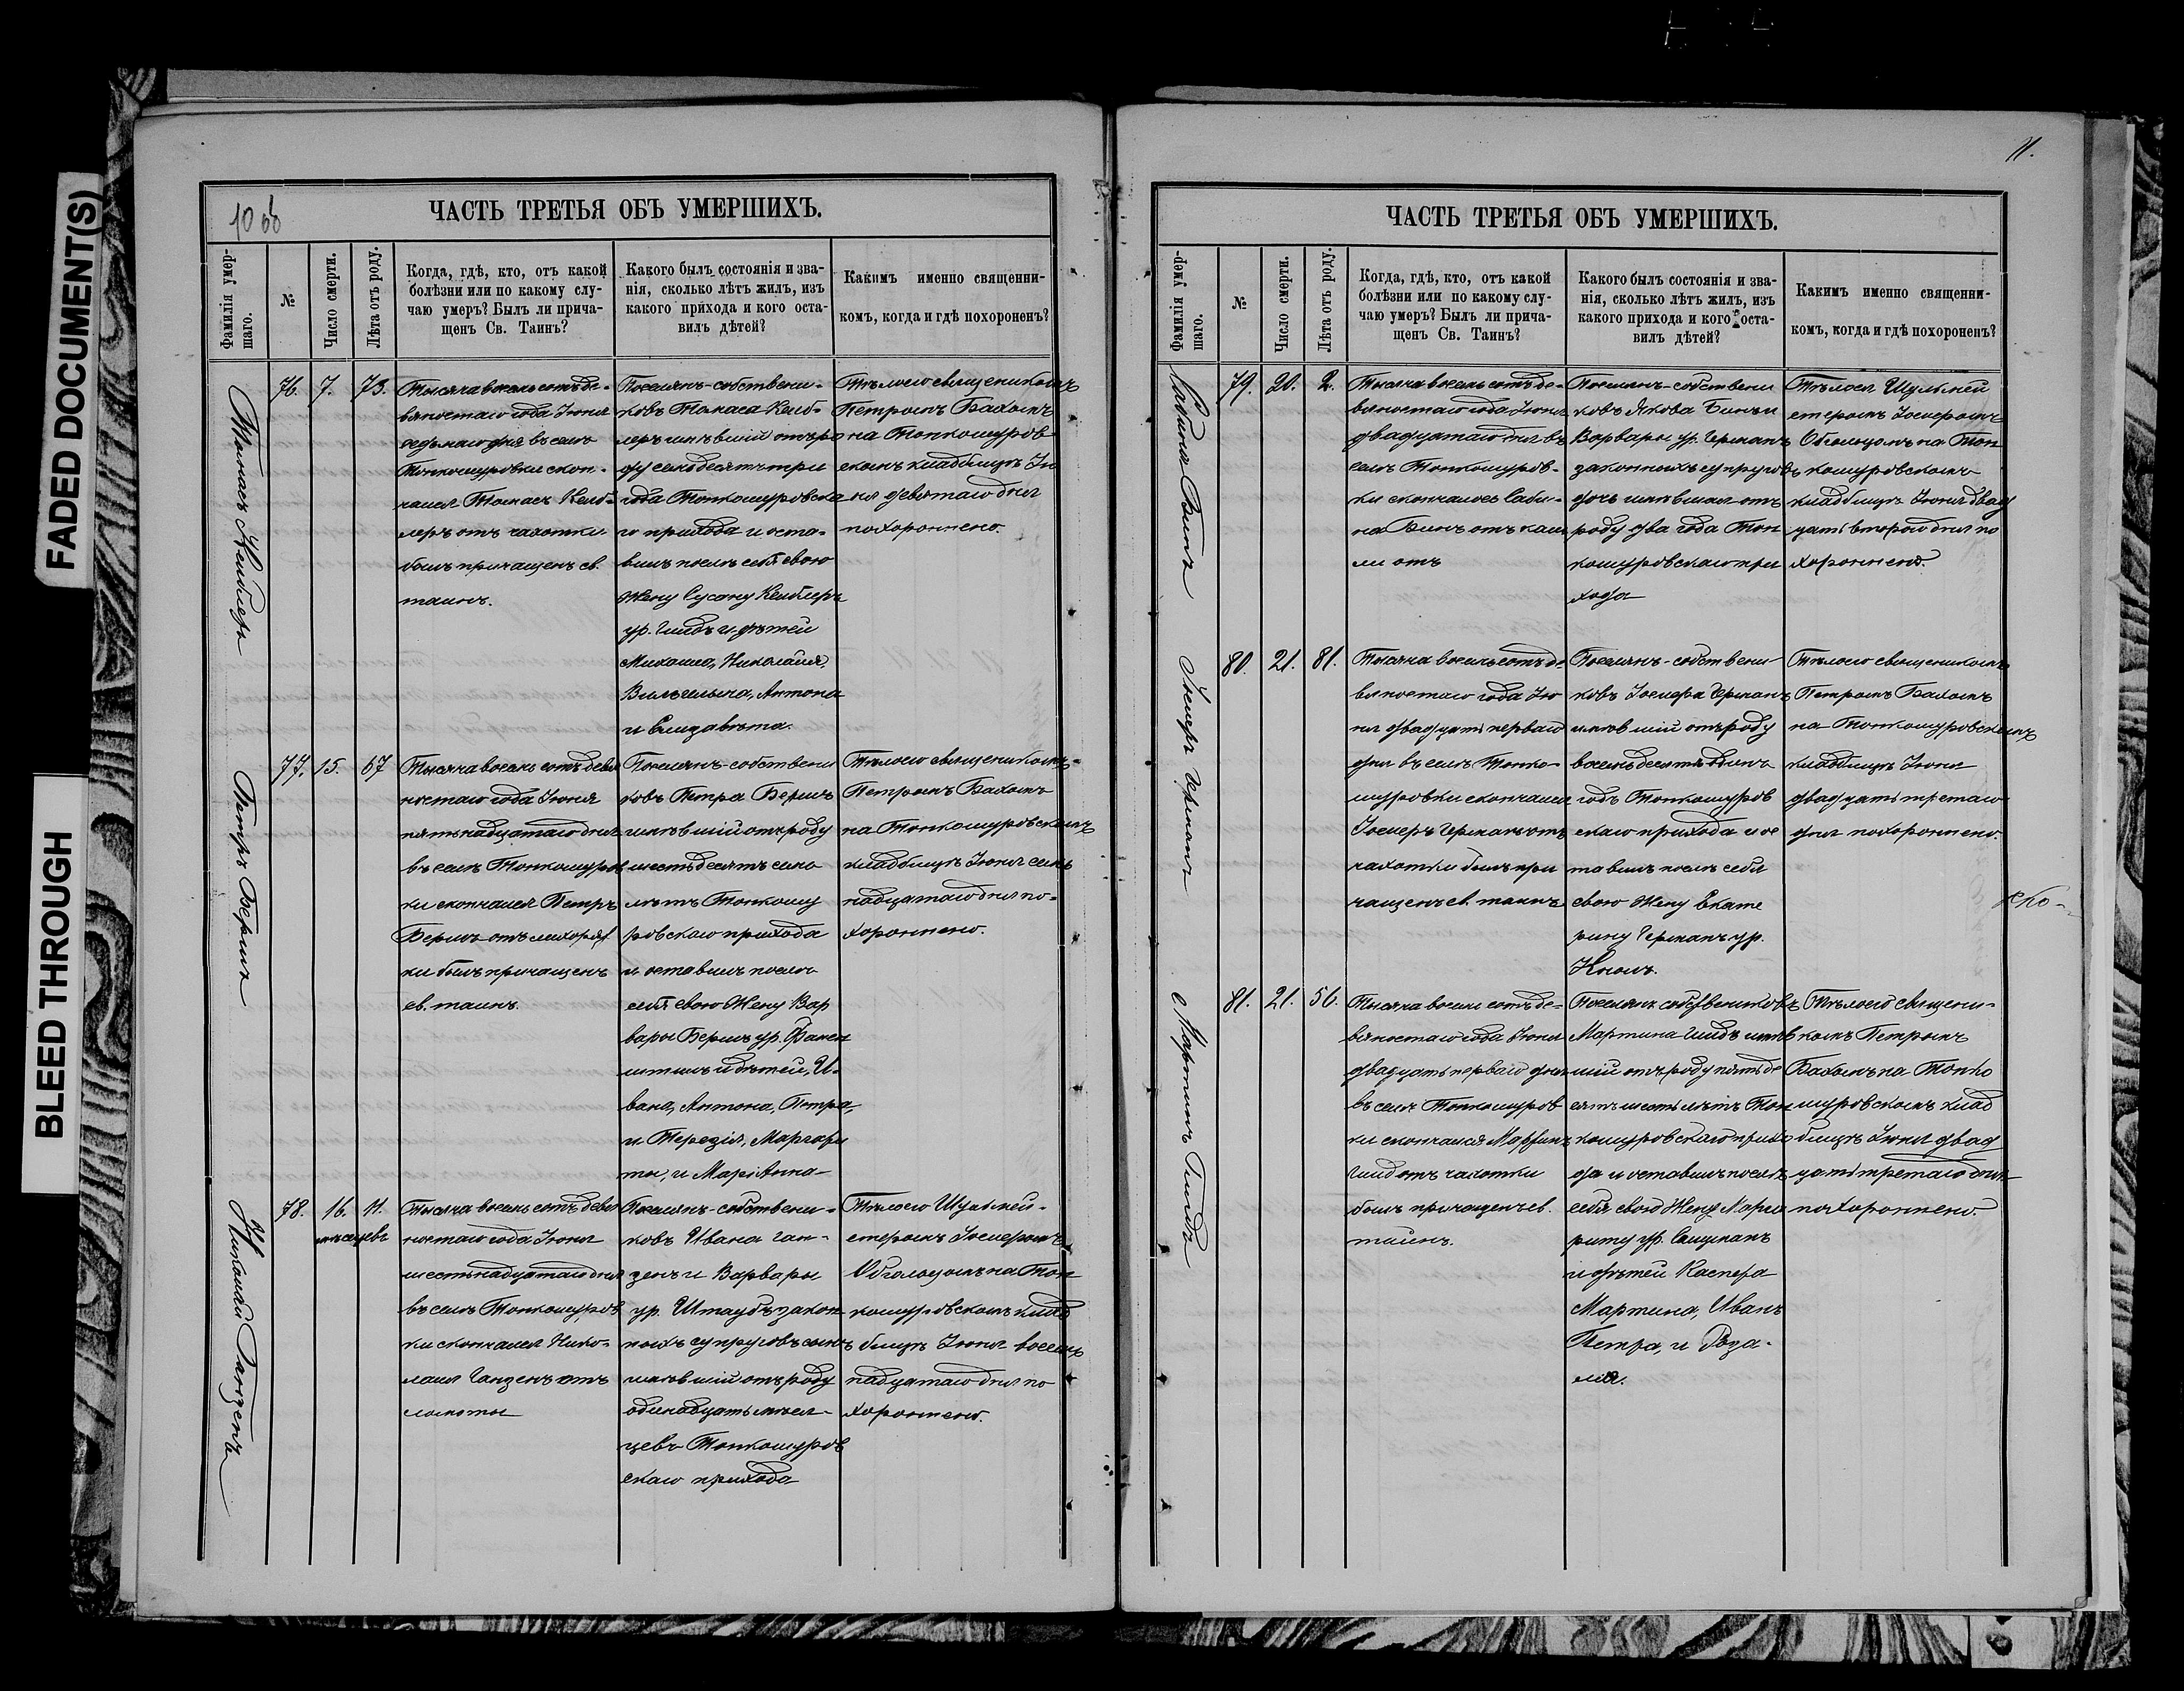 FADED DOCUMENT(S)
BLEED THROUGH
10 об
ЧАСТЬ ТРЕТЬЯ ОБЪ УМЕРШИХЪ.
Фамилія умер-
шаго.
№
Число смерти.
Лѣта отъ роду.
Когда, гдѣ, кто, отъ какой
болѣзни или по какому слу-
чаю умеръ? Былъ ли прича-
щенъ Св. Таинъ?
Какого былъ состоянія и зва-
нія, сколько лѣтъ жилъ, изъ
какого прихода и кого оста-
вилъ дѣтей?
Какимъ именно священни-
комъ, когда и гдѣ похороненъ?
Томасъ Кейблеръ
76. 7. 73.
Тысяча восемь сотъ де-
вяностаго года Іюня
седьмаго дня въ селѣ
Тонкошуровки скон-
чался Томасъ Кейб-
леръ отъ чахотки
былъ причащенъ св.
таинъ.
Поселянъ-собствени-
ковъ Томаса Кейб-
леръ имѣвшій отъ ро
ду семьдесятъ три
года Тонкошуровска
го прихода и оста-
вилъ послѣ себя свою
жену Сусану Кейблеръ
ур. Гиндъ и дѣтей
Михаила, Николайя,
Вильгельма, Антона
и Елизавѣта.
Тѣлосіо священикомъ
Петромъ Бахомъ
на Тонкошуров
скомъ кладбищѣ Ію
ня девятаго дня
похороннено.
Петръ Бершъ
77. 15. 67
Тысяча восемь сотъ девя
ностаго года Іюня
пятьнадцатаго дня
въ селѣ Тонкошуров
ки скончался Петръ
Бершъ отъ лихорад
ки былъ причащенъ
св. таинъ.
Поселянъ-собствени
ковъ Петра Бершъ
имѣвшій отъ роду
шестьдесятъ семь
лѣтъ Тонкошу
ровскаго прихода
и оставилъ послѣ
себя свою жену Вар
вары Бершъ ур.
и дѣтей, И-
вана, Антона, Петра,
и Терезія, Маргари
ты, и МаріАнна
Тѣлосіо священикомъ
Петромъ Бахомъ
на Тонкошуровскомъ
кладбищѣ Іюня семь
надцатаго дня по-
хороннено.
Николай Ганзенъ
78. 16. 11.
мѣсяцевъ
Тысяча восемь сотъ девя
ностаго года Іюня
шестьнадцатаго дня
въ селѣ Тонкошуров
ки скончался Нико-
лай Ганзенъ отъ
ломоты
Поселянъ-собствени-
ковъ Ивана Ган-
зенъ и Варвары
ур. Штаубъ закон
ныхъ супруговъ сынъ
имѣвшій отъ роду
одинадцать мѣся-
цевъ Тонкошуров
скаго прихода
Тѣлосіо Шульмей-
стеромъ Іосифомъ
Обгольцомъ на Тон
кошуровскомъ клад
бищѣ Іюня восемь
надцатаго дня по
хороннено.
11.
ЧАСТЬ ТРЕТЬЯ ОБЪ УМЕРШИХЪ.
Фамилія умер-
шаго.
№
Число смерти.
Лѣта отъ роду.
Когда, гдѣ, кто, отъ какой
болѣзни или по какому слу-
чаю умеръ? Былъ ли прича-
щенъ Св. Таинъ?
Какого былъ состоянія и зва-
нія, сколько лѣтъ жилъ, изъ
какого прихода и кого оста-
вилъ дѣтей?
Какимъ именно священни-
комъ, когда и гдѣ похороненъ?
Сабина Бинъ
79. 20. 2.
Тысяча восемь сотъ де-
вяностаго года Іюня
двадцатаго дня въ
селѣ Тонкошуров-
ки скончалась Саби-
на Бинъ отъ каш
ли отъ
Поселянъ-собствени
ковъ Якова Бинъ и
Варвары ур. Германъ
законныхъ супруговъ
дочь имѣвшая отъ
роду два года Тон
кошуровскаго при
хода
Тѣлосія Шульмей
стеромъ Іосифомъ
Обгольцомъ на Тон
кошуровскомъ
кладбищѣ Іюня двад
цать второго дня по
хороннено.
Іосифъ Германъ
80. 21. 81.
Тысяча восемь сотъ де
вяностаго года Ію
ня двадцать перваго
дня въ селѣ Тонко-
шуровки скончался
Іосифъ Германъ отъ
чахотки былъ при
чащенъ св. таинъ
Поселянъ-собствени
ковъ Іосифа Германъ
имѣвшій отъ роду
восемьдесятъ одинъ
годъ Тонкошуров
скаго прихода и ос
тавилъ послѣ себя
свою жену Екате
рину Германъ ур.
Кноль.
Тѣлосіо священикомъ
Петромъ Бахомъ
на Тонкошуровскомъ
кладбищѣ Іюня
двадцать третаго
дня похороннено.
Мартинъ Гиндъ
81. 21. 56.
Тысяча восемь сотъ де-
вяностаго года Іюня
двадцать перваго дня
въ селѣ Тонкошуров
ки скончался Мартинъ
Гиндъ отъ чахотки
былъ причащенъ св.
таинъ.
Поселянъ собствениковъ
Мартина Гиндъ имѣв
шій отъ роду пятьде
сятъ шесть лѣтъ Тон
кошуровскаго прихо
да и оставилъ послѣ
себя свою жену Марга
риту ур.
и дѣтей Каспера
Мартина, Иванъ
Петра, и Роза-
лія.
Тѣлосіо священи-
комъ Петромъ
Бахомъ на Тонко
шуровскомъ клад
бищѣ Іюня двад
цать третаго дня
похороннено.